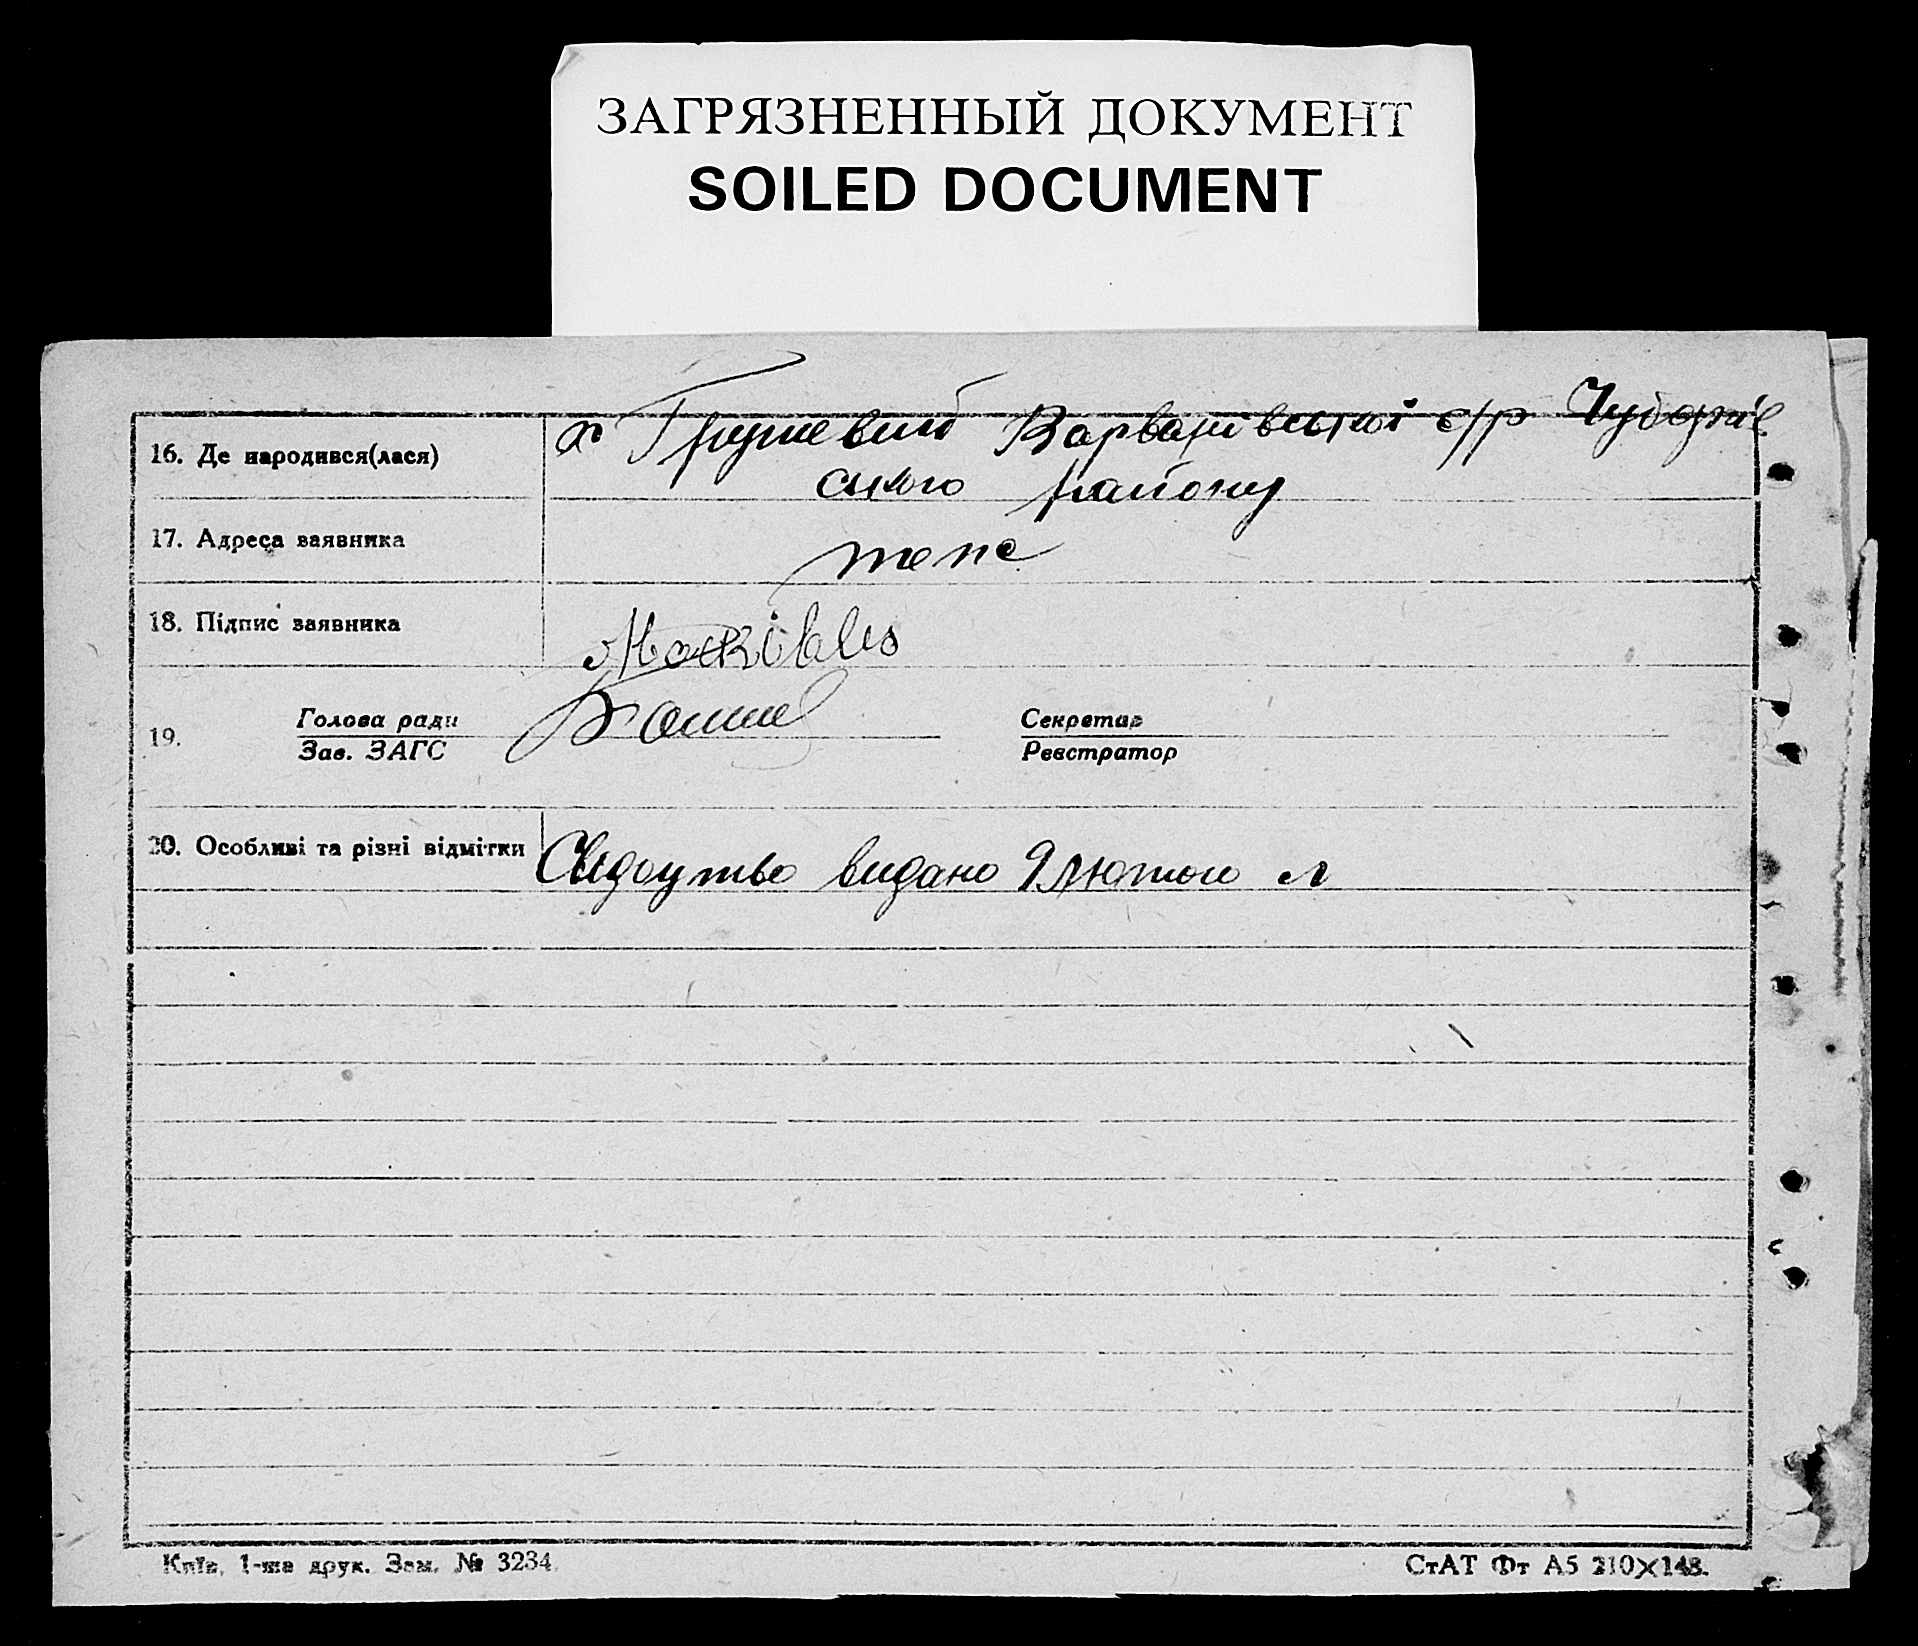 ЗАГРЯЗНЕННЫЙ ДОКУМЕНТ
SOILED DOCUMENT
16. Де народився(лася) х Грушевий Варварівської с/р Чубарів
ського району
17. Адреса заявника теж
18. Підпис заявника
19. Голова ради
Зав. ЗАГС
Секретар
Реєстратор
20. Особливі та різні відмітки Свідоцтво видано 9 лютого
Київ, 1-ша друк. Зам. № 3234.
СтАТ Фт А5 210×148.